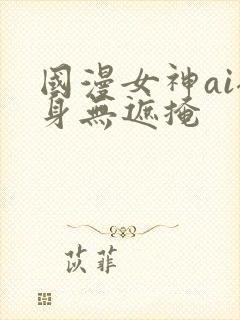 國漫女神ai
身無遮掩
苡菲